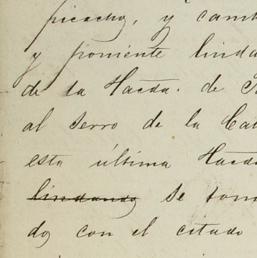 picacho, y camb
y poniente linda
de la Hacda. de S
al serro de la Ca
esta última Hacd
lindando se tom
do, con el citado